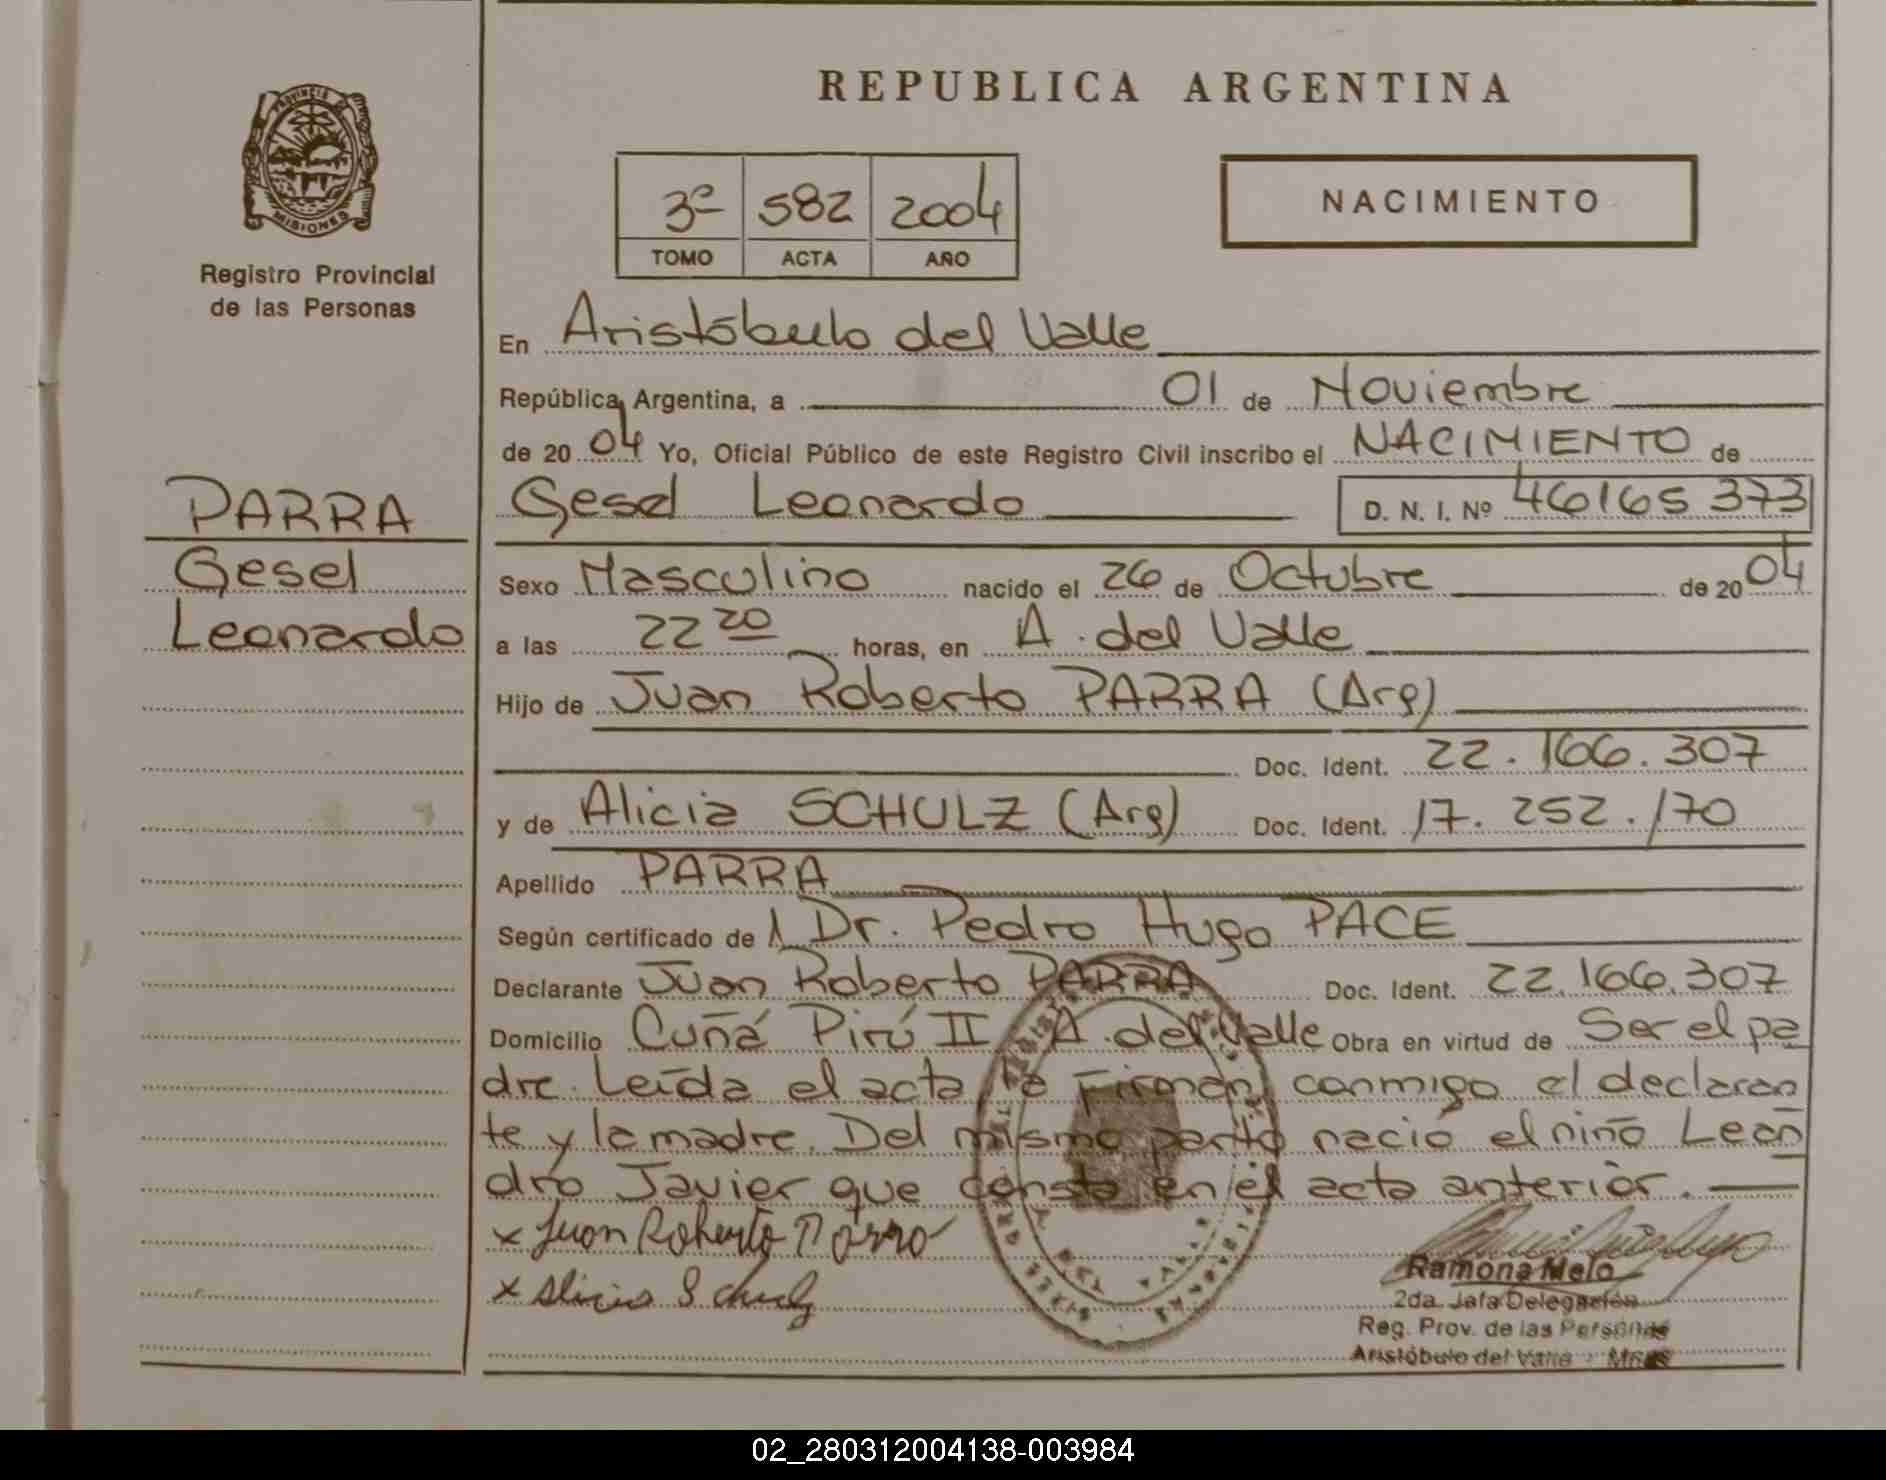 REPUBLICA ARGENTINA
PROVINCIA DE
MISIONES
Registro Provincial
de las Personas
3º 582 2004
TOMO ACTA AÑO
NACIMIENTO
En Aristóbulo del Valle
República Argentina, a 01 de Noviembre
de 2004 Yo, Oficial Público de este Registro Civil inscribo el NACIMIENTO de
PARRA
Gesel
Leonardo
Gesel Leonardo D. N. I. Nº 46165 373
Sexo Masculino nacido el 26 de Octubre de 2004
a las 22 20 horas, en A. del Valle
Hijo de Juan Roberto PARRA (Arg)
Doc. Ident. 22.166.307
y de Alicia SCHULZ (Arg) Doc. Ident. 17.252.170
Apellido PARRA
Según certificado de l Dr. Pedro Hugo PACE
Declarante Juan Roberto PARRA Doc. Ident. 22.166.307
Domicilio Cuñá Pirú II A. del Valle Obra en virtud de Ser el pa
dre. Leída el acta la Firman conmigo el declaran
te y la madre. Del mismo parto nació el niño Lean
dro Javier que consta en el acta anterior.
x Juan Roberto Parra
x Alicia Schulz
Ramona Melo
2da. Jefa Delegación
Reg. Prov. de las Personas
Aristóbulo del Valle - Mnes
02_280312004138-003984